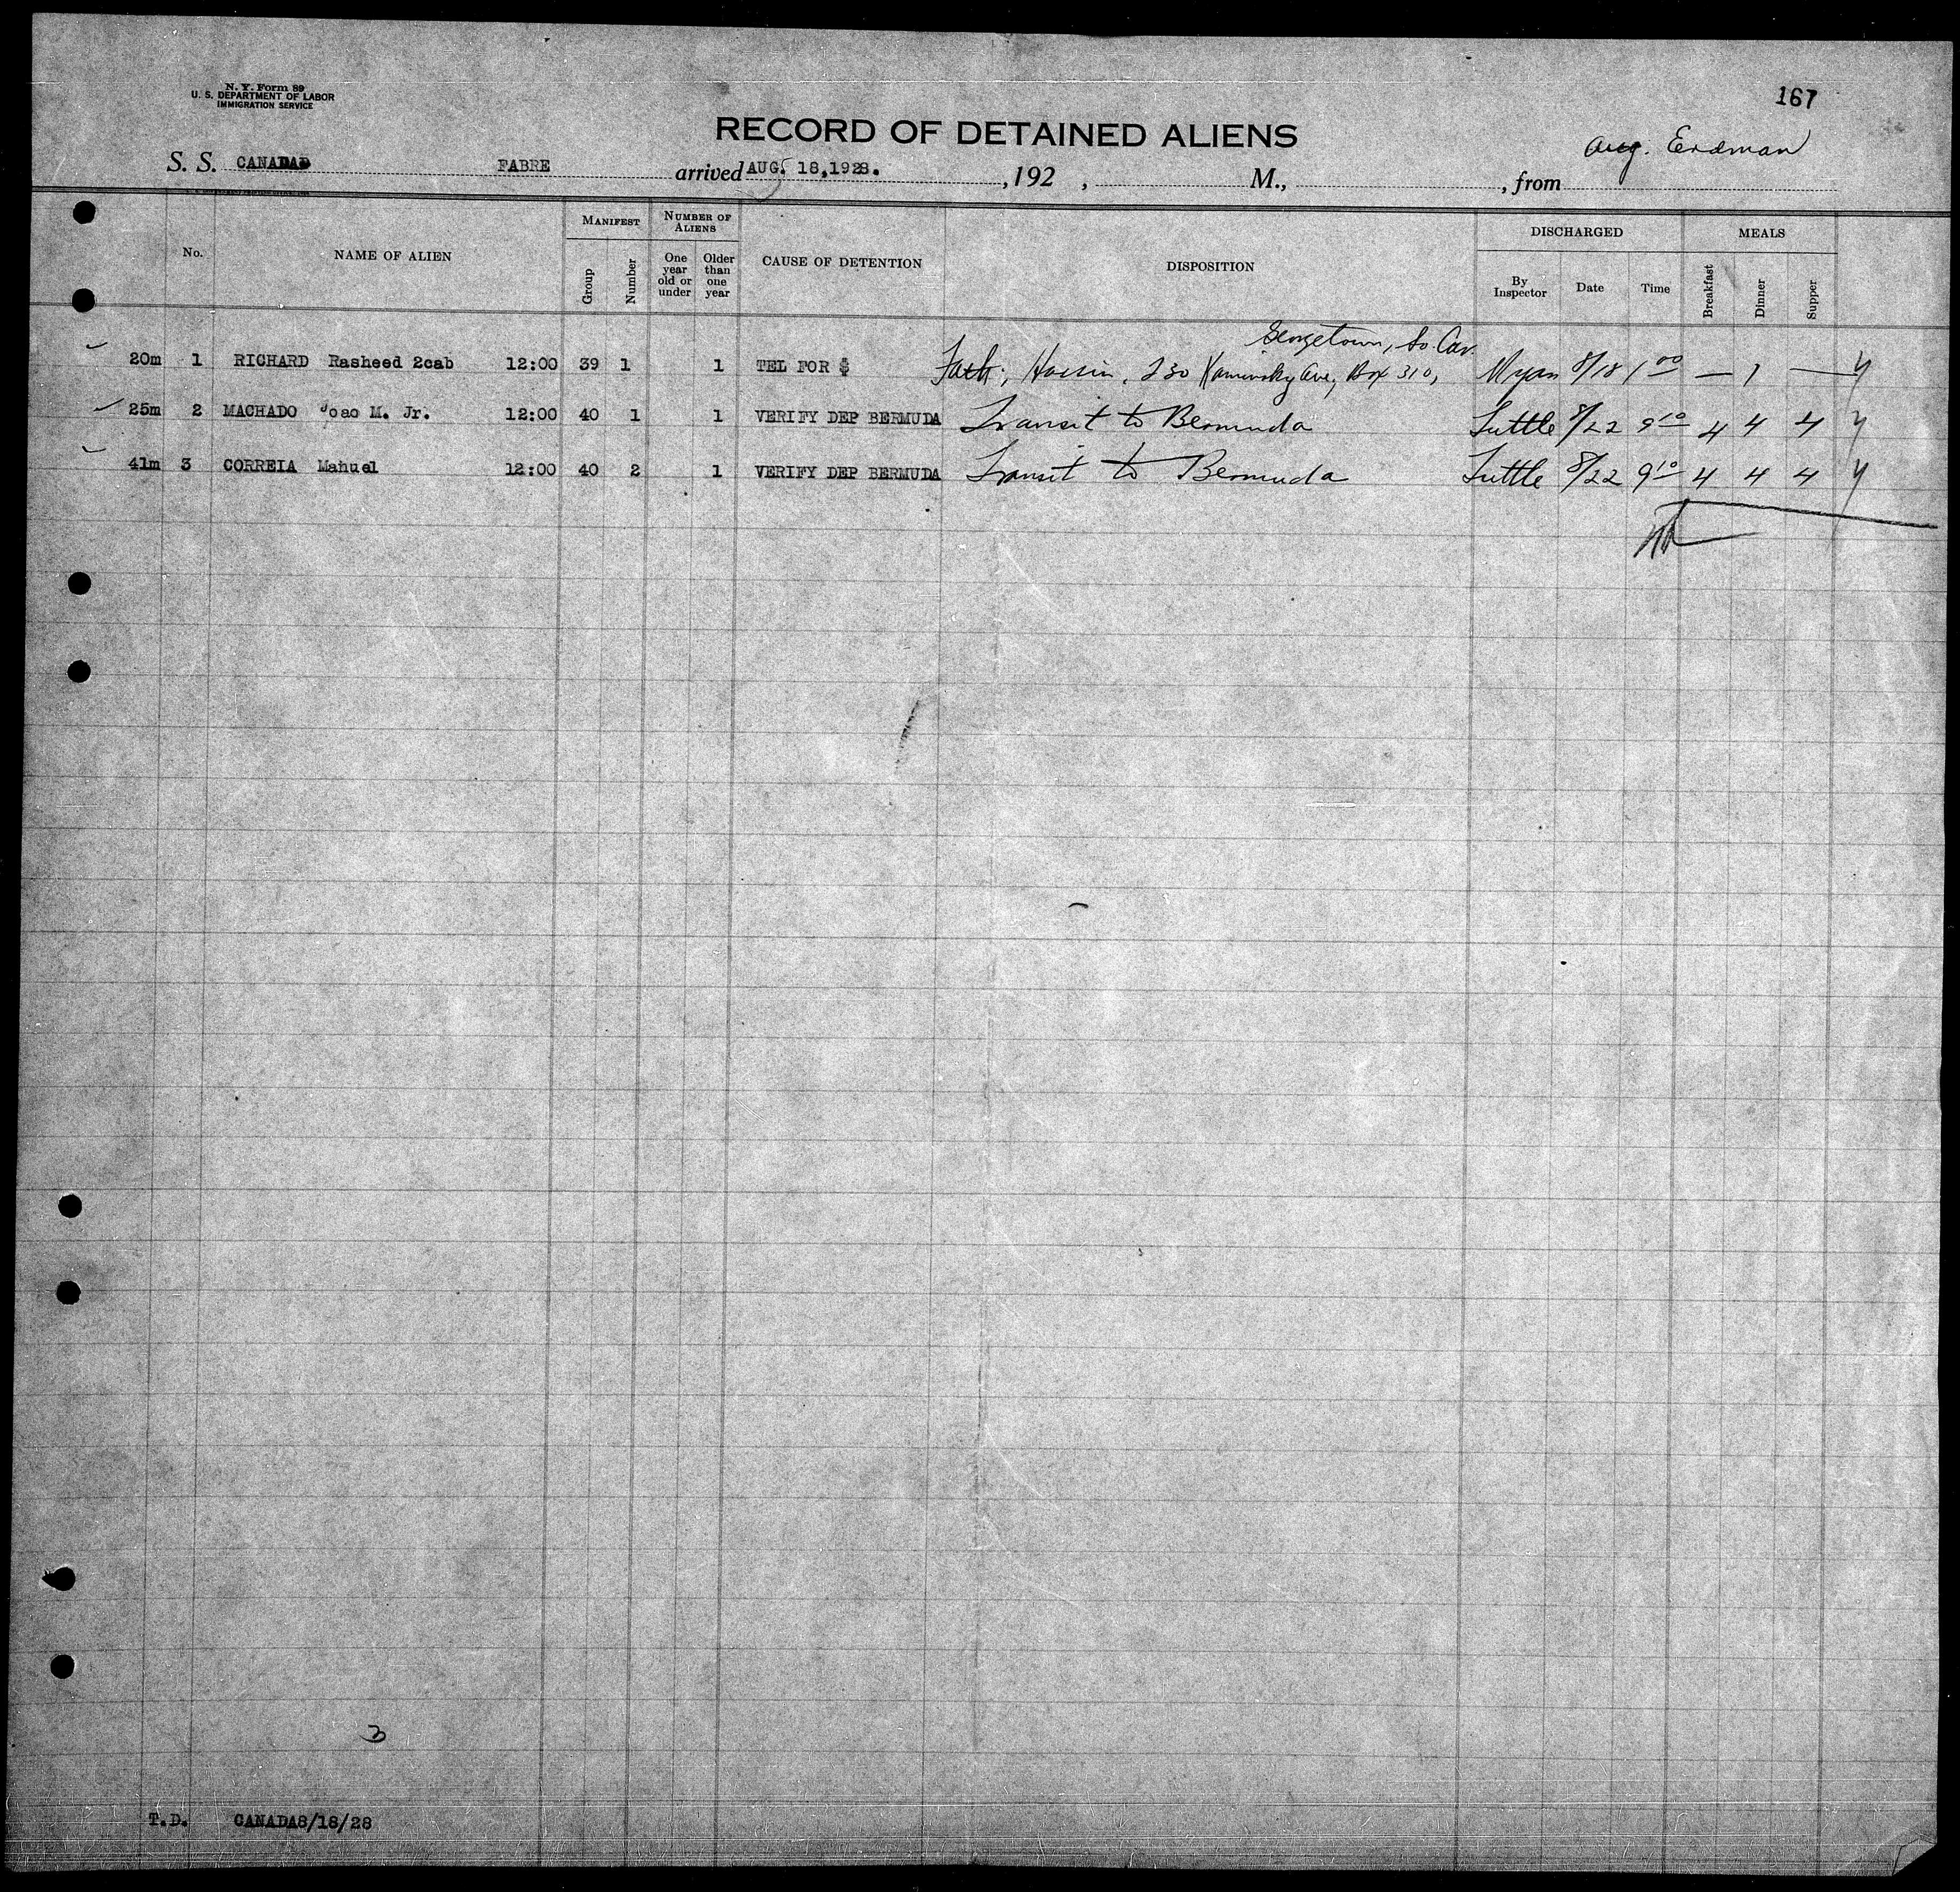 N. Y. Form 89
U. S. DEPARTMENT OF LABOR
IMMIGRATION SERVICE
167
RECORD OF DETAINED ALIENS
Aug. Erdman
S. S. CANADA FABRE arrived AUG. 18,1928. ,192 , M., , from
No. NAME OF ALIEN MANIFEST Group Number NUMBER OF ALIENS One year old or under Older than one year CAUSE OF DETENTION DISPOSITION DISCHARGED By Inspector Date Time MEALS Breakfast Dinner Supper
Georgetown, So Car.
20m 1 RICHARD Rasheed 2cab 12:00 39 1 1 TEL FOR $ Fath; Hassin, 230 Kaminsky Ave, Box 310, Ryan 8/18 1 00 — 1 —
25m 2 MACHADO Joao M. Jr. 12:00 40 1 1 VERIFY DEP BERMUDA Transit to Bermuda Tuttle 8/22 9 10 4 4 4
41m 3 CORREIA Manuel 12:00 40 2 1 VERIFY DEP BERMUDA Transit to Bermuda Tuttle 8/22 9 10 4 4 4
3
T.D. CANADA8/18/28